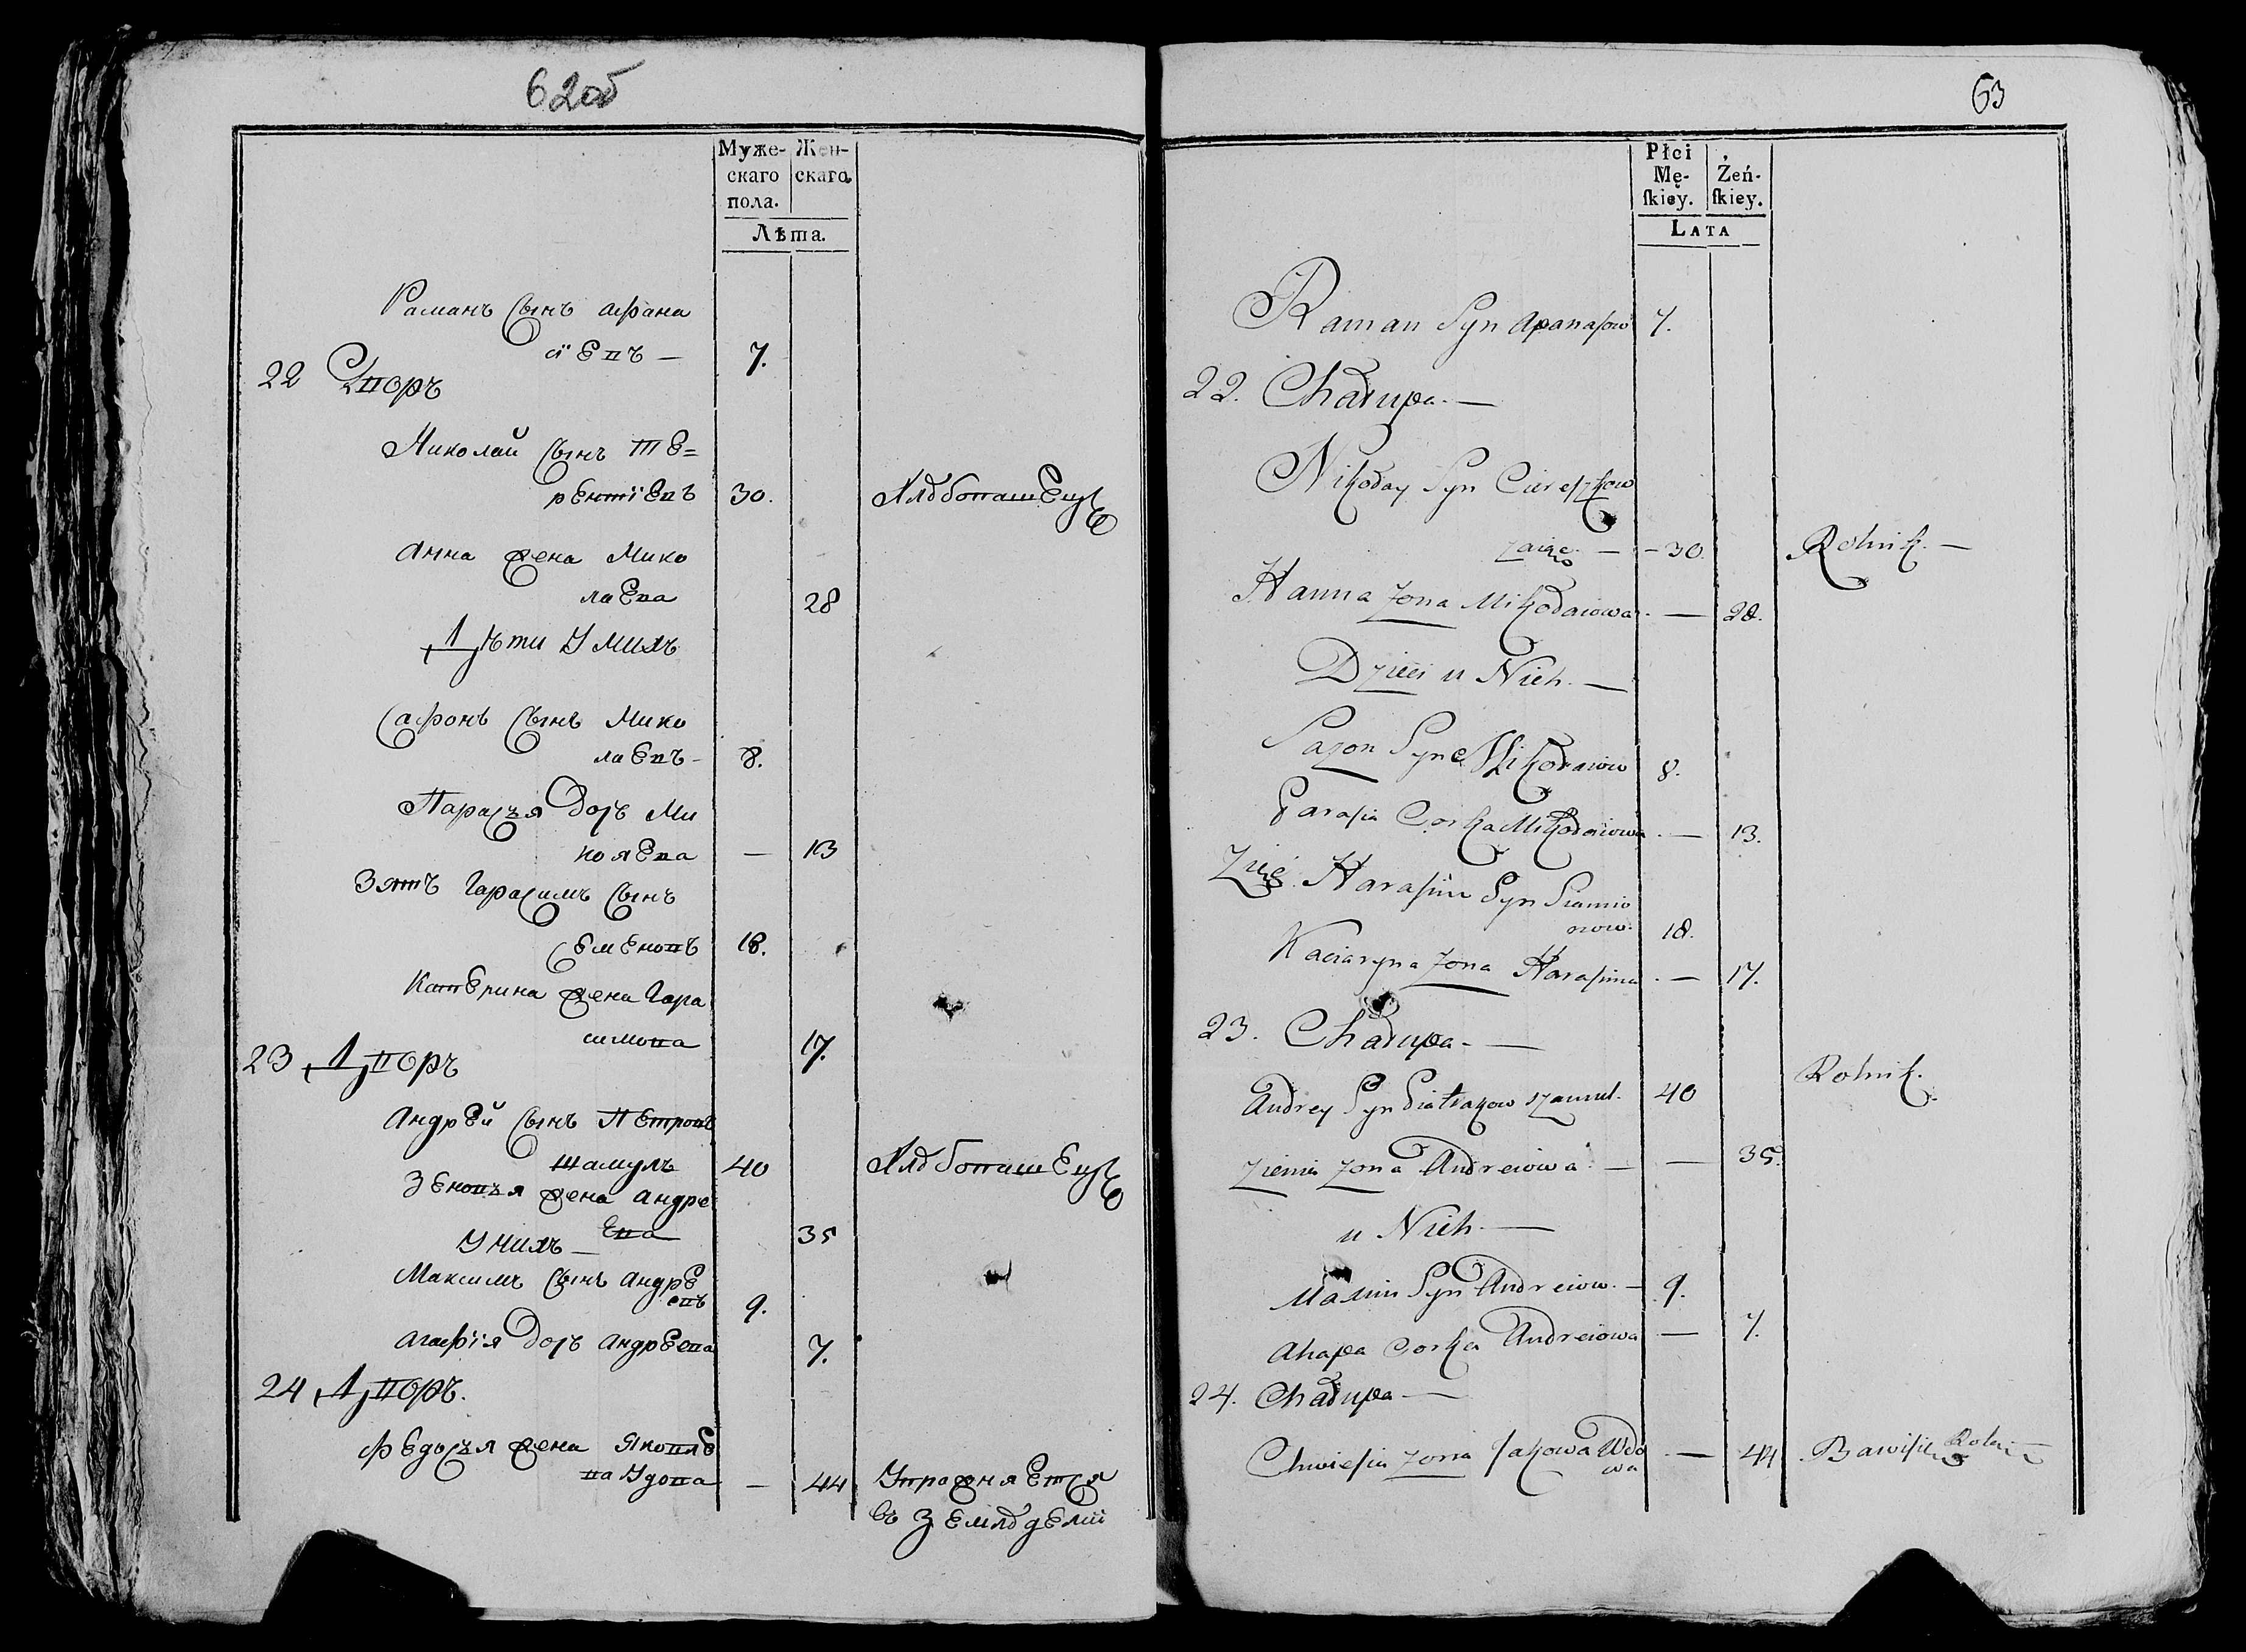 62об
Муже-
скаго
пола.
Жен-
скаго.
Лѣта.
Раманъ Сынъ афана
сіевъ — 7.
22 Дворъ
Николай Сынъ те=
рентіевъ 30. Хлѣбопашецъ
Анна жена Нико
лаева 28
Дѣти У нихъ
Сафонъ Сынъ Нико
лаевъ - 8.
Парасья Дочь Ни
колаева — 13
Зять Гарасимъ Сынъ
Семеновъ 18.
Катерина жена Гара
симова 17.
23 Дворъ
Андрей Сынъ Петровъ
Шамулъ 40 Хлѣбопашецъ
Зеновья жена Андре
ева 35
У нихъ —
Максимъ Сынъ андре
евъ 9.
агафія Дочь андреева 7.
24 Дворъ.
Федосья жена Яковле
ва Удова — 44 Упражняется
въ Земледелии
63
Płci
Mę-
ſkiey.
Żeń-
ſkiey.
LATA
Raman Syn Apanaſow 7.
22. Chałupa. —
Nikołay Syn Ciereſzkow
— - 30. Rolnik. —
Hanna Zona Mikołaiowa. — 28.
Dzieci u Nich. —
Sazon Syn Mikołaiow 8.
Paraſia Corka Mikołaiowa. — 13.
Zięć. Haraſim Syn Siamio
now. 18.
Kaciaryna Zona Haraſima. — 17.
23. Chałupa. —
Rolnik.
Andrey Syn Piatrakow Szamul. 40
Zienia Zona Andreiowa. — — 35.
u Nich —
Maxim Syn Andreiow. — 9.
Ahapa Corka Andreiowa — 7.
24. Chałupa —
Chwieſia Zona Jakowa Wdo
wa — 44 Bawi się Rolni